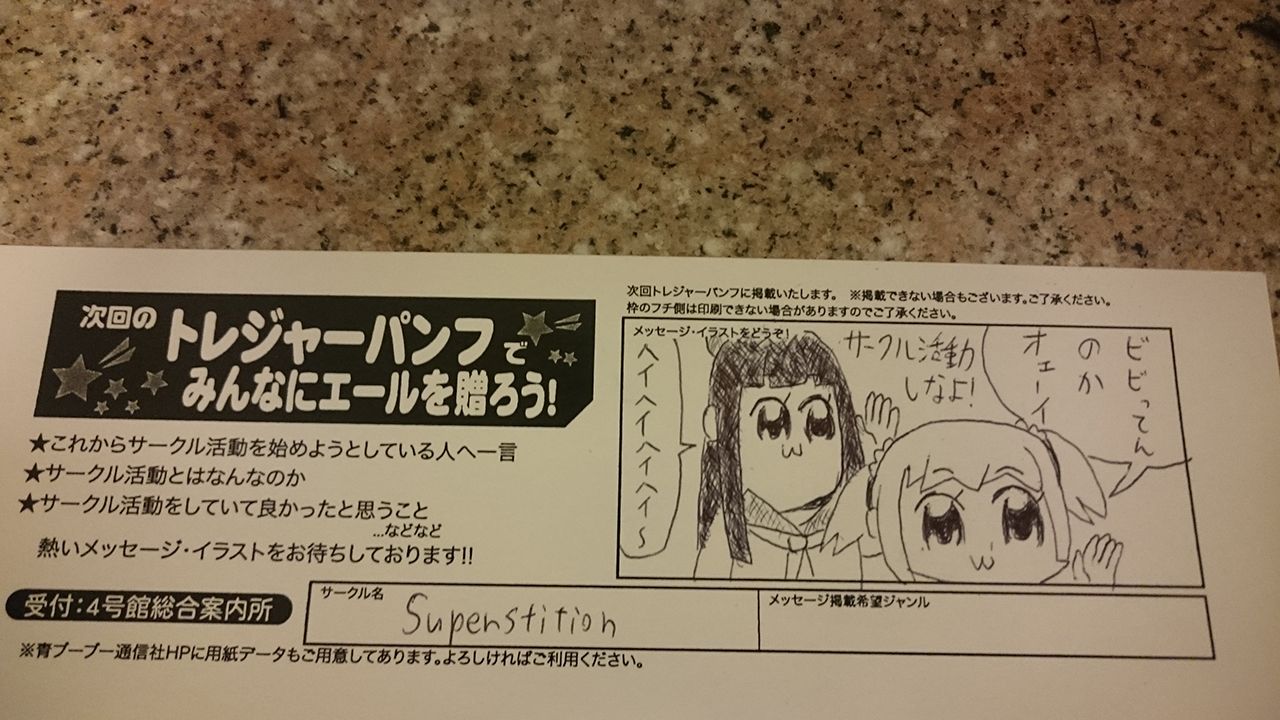 次回の
トレジャーパンフで
みんなにエールを贈ろう!
★これからサークル活動を始めようとしている人へ一言
★サークル活動とはなんなのか
★サークル活動をしていて良かったと思うこと
…などなど
熱いメッセージ・イラストをお待ちしております!!
次回トレジャーパンフに掲載いたします。 ※掲載できない場合もございます。ご了承ください。
枠のフチ側は印刷できない場合がありますのでご了承ください。
メッセージ・イラストをどうぞ!
ビビってん
のか
オェーイ
サークル活動
しなよ!
ヘイヘイヘイヘイ〜
受付:4号館総合案内所
サークル名
Superstition
メッセージ掲載希望ジャンル
※青ブーブー通信社HPに用紙データもご用意してあります。よろしければご利用ください。